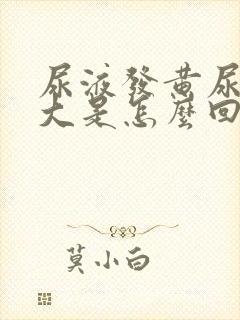 尿液發黄尿
大是怎麼回
莫小白